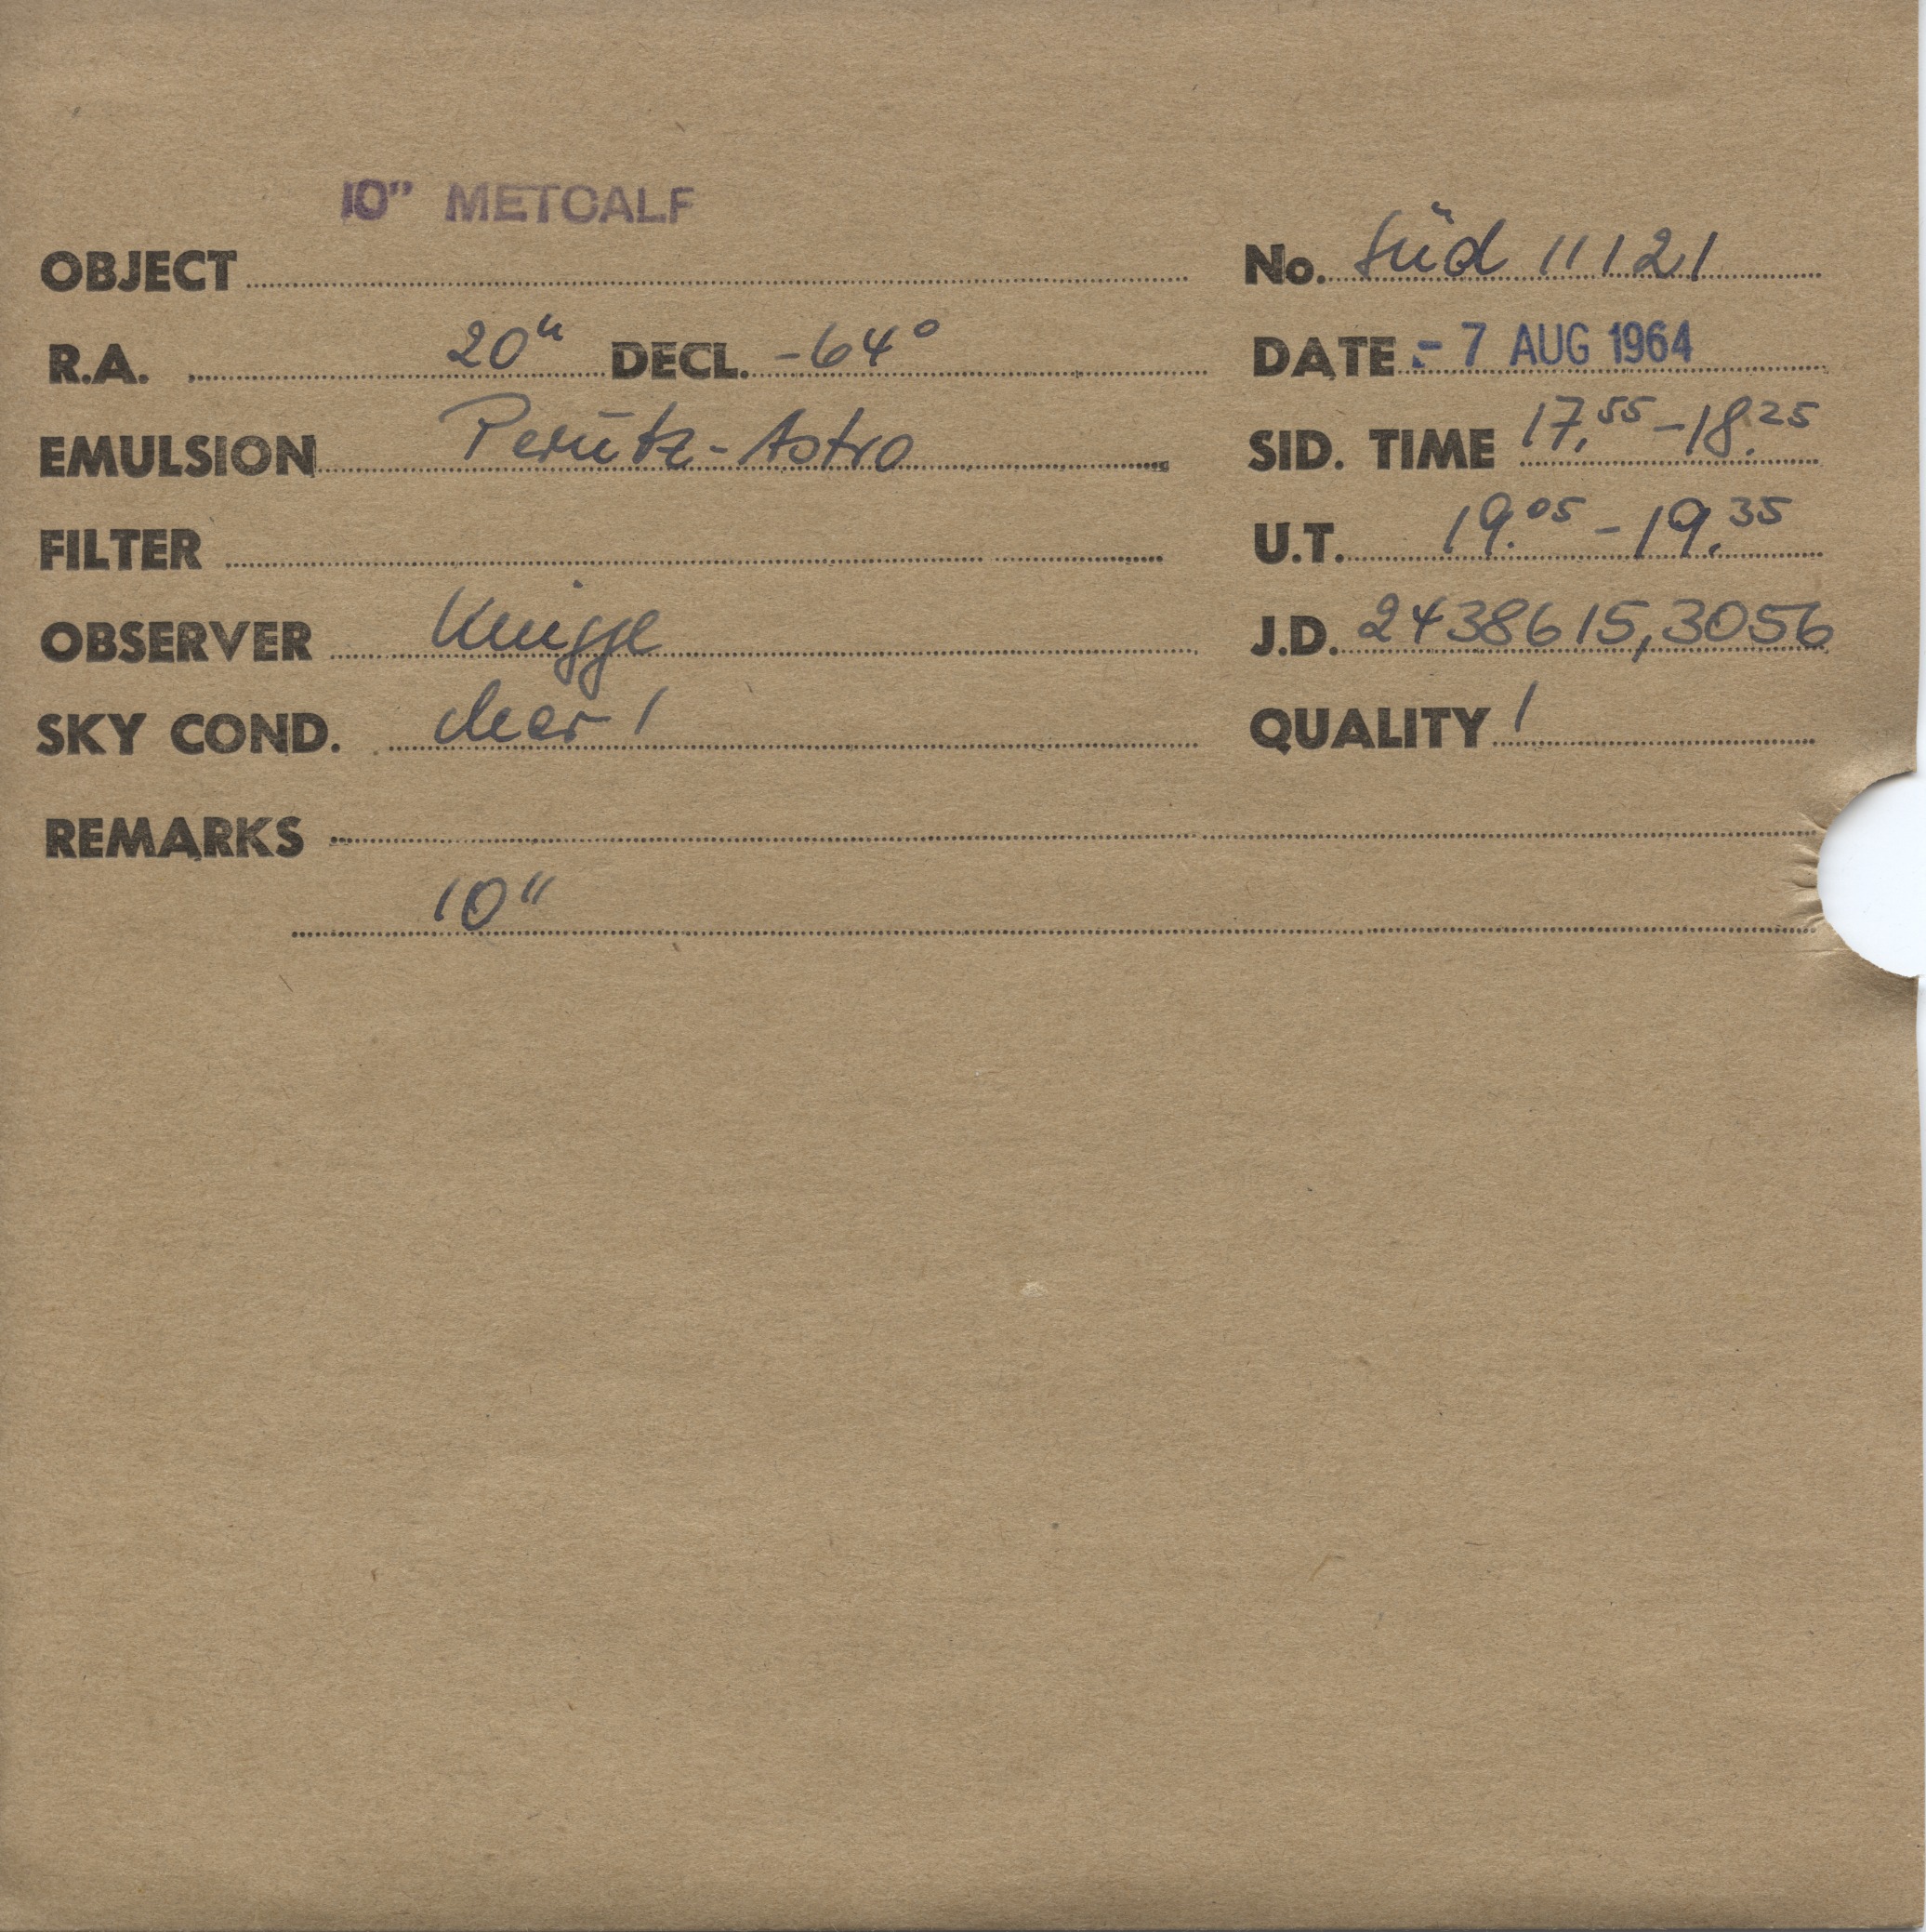 10" METCALF
OBJECT No. Süd 11121
R.A. 20h DECL. -64° DATE - 7 AUG 1964
EMULSION Perutz-Astro SID. TIME 17.55-18.25
FILTER U.T. 19.05-19.35
OBSERVER Knigge J.D. 2438615,3056
SKY COND. clear 1 QUALITY 1
REMARKS
10"